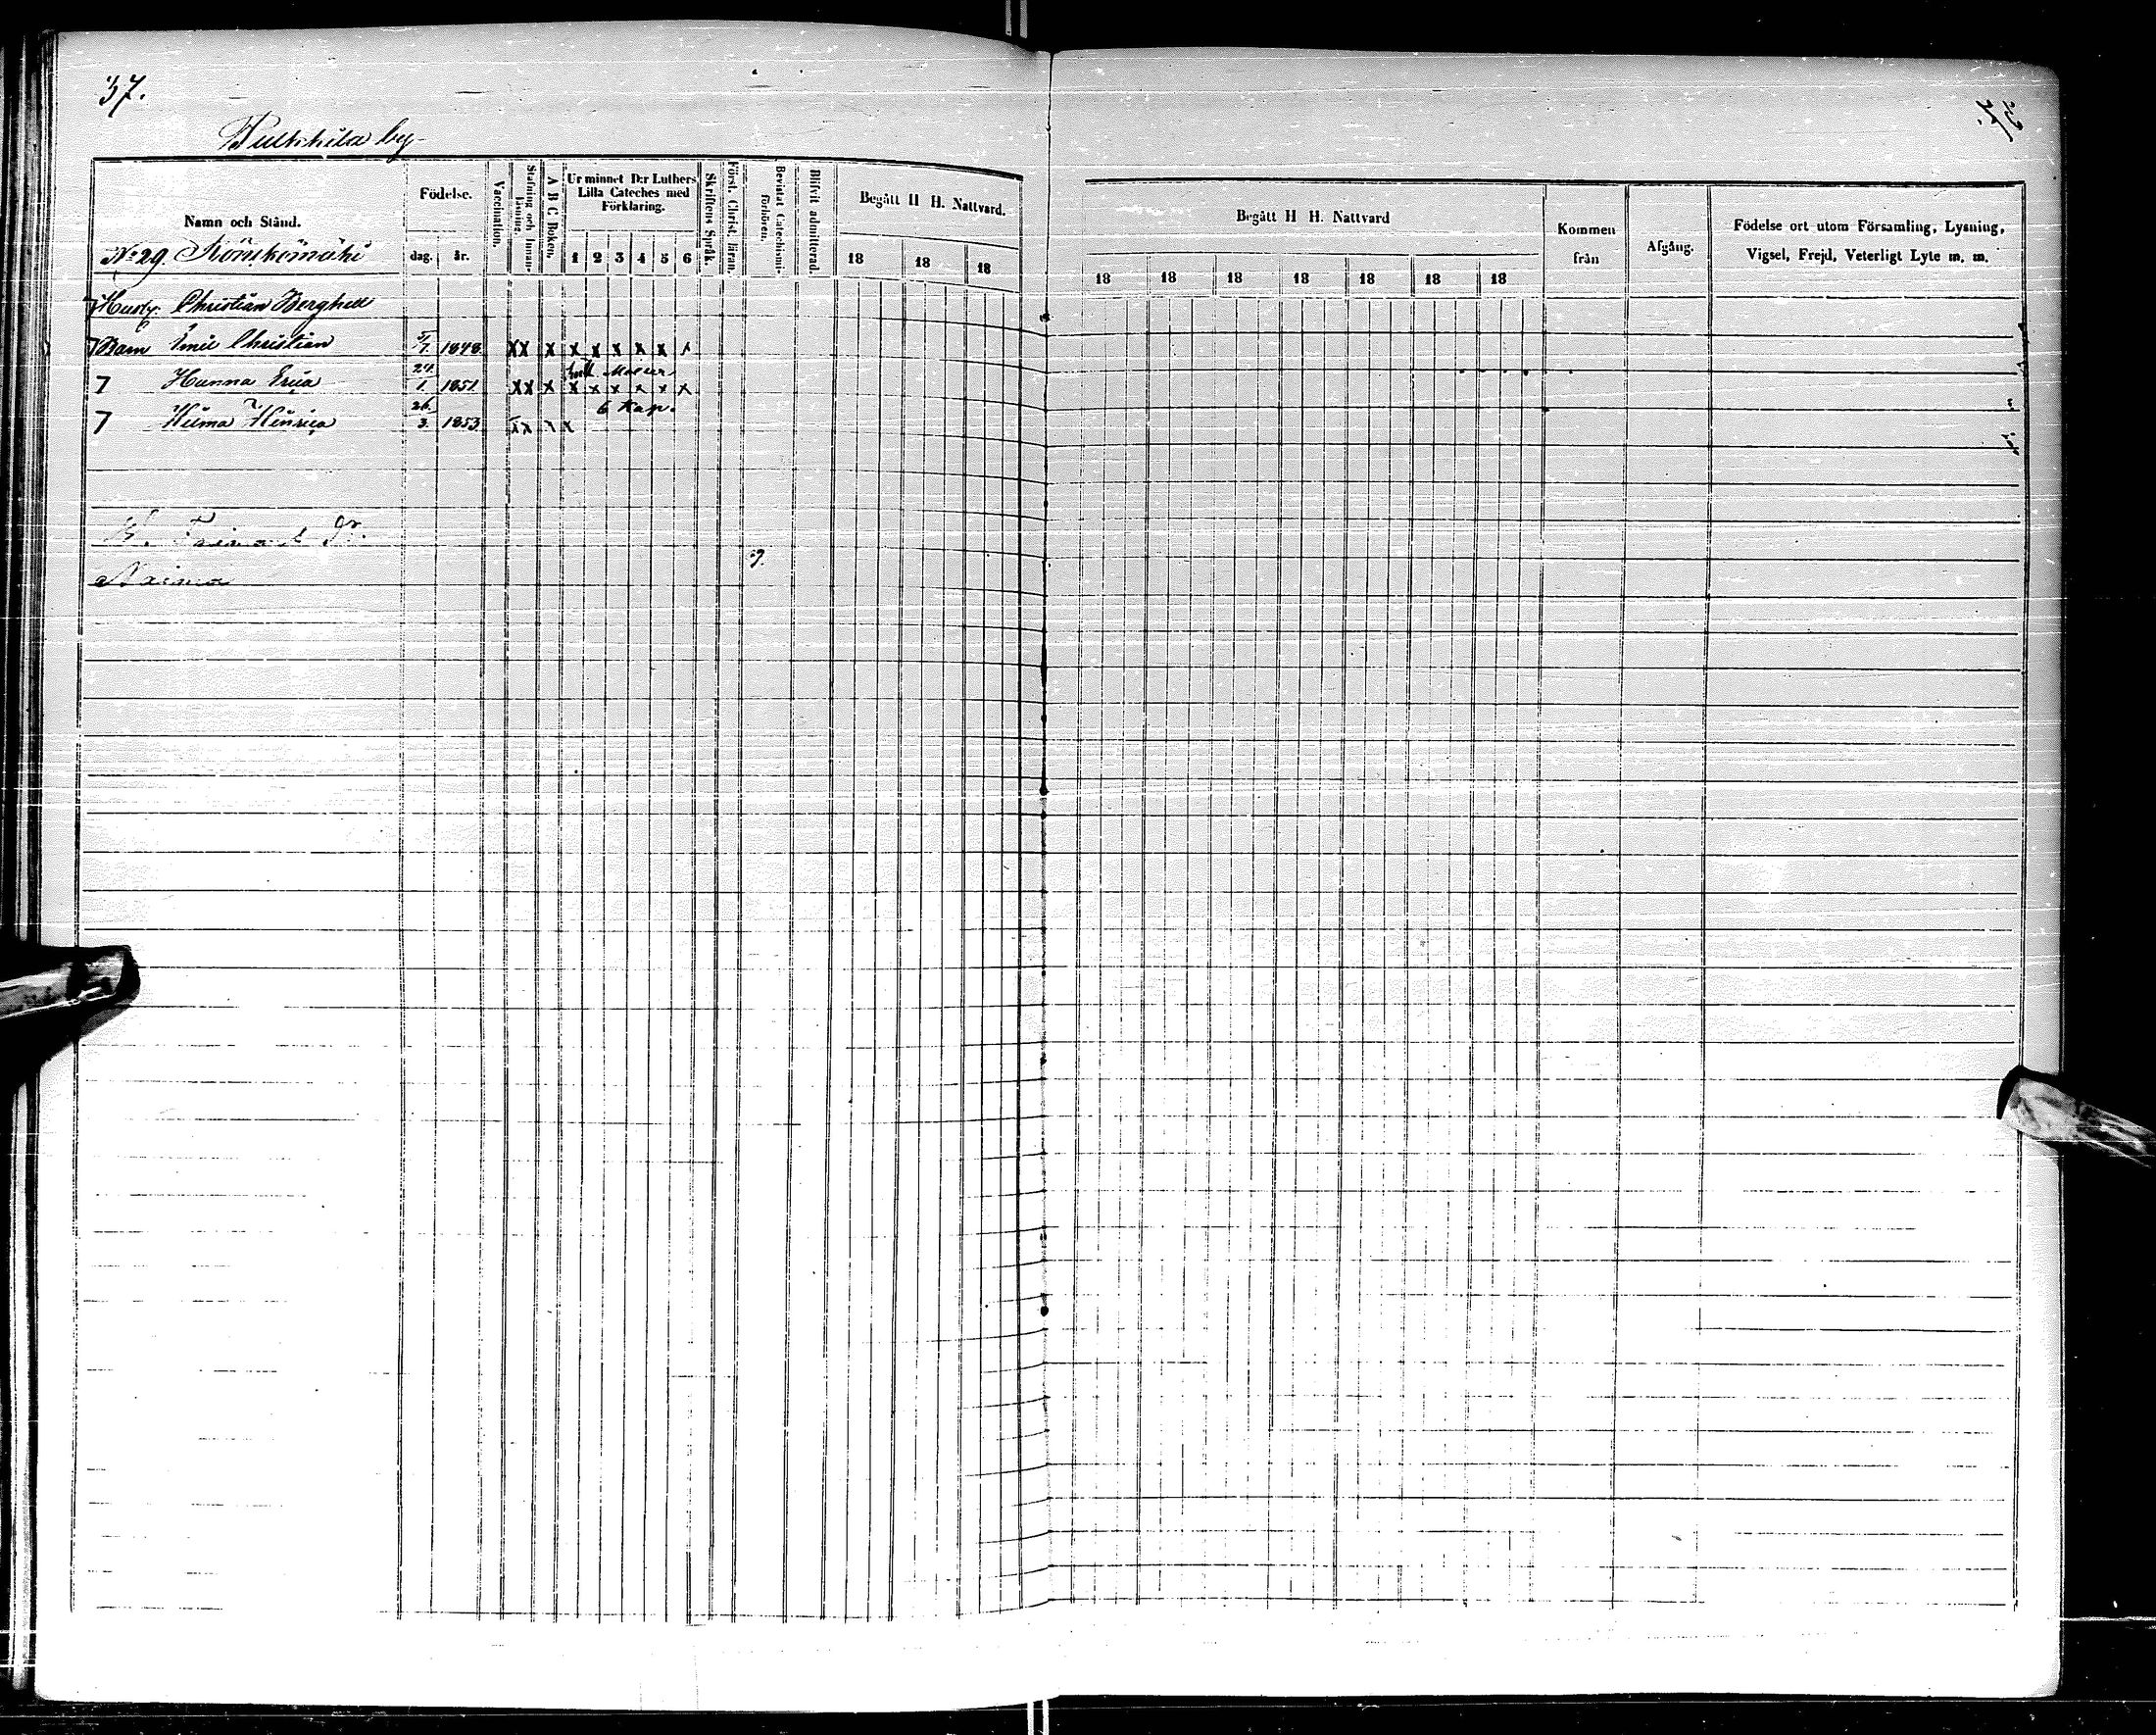 37.
Pulkkila by
Namn och Stånd.
Födelse.
dag. år.
Vaccination.
Stafning och Innanläsning.
A B C Boken.
Ur minnet D:r Luthers Lilla Cateches med Förklaring.
1 2 3 4 5 6
Skriftens Språk.
Först. Christ. läran.
Bevistat Catechismiförhören.
Blifvit admitterad.
Begått H H. Nattvard.
18 18 18
Begått H H. Nattvard
18 18 18 18 18 18 18
Kommen från
Afgång.
Födelse ort utom Församling, Lysning, Vigsel, Frejd, Veterligt Lyte m. m.
No 29.
Christian Berghell
Barn Emil Christian 1848 x x x x x x x x
7 Hanna Erica 24. 1. 1851 x x x x x x x x x
6 Kap.
7 Hilma Henrica 26. 3. 1853 x x x x
Naima